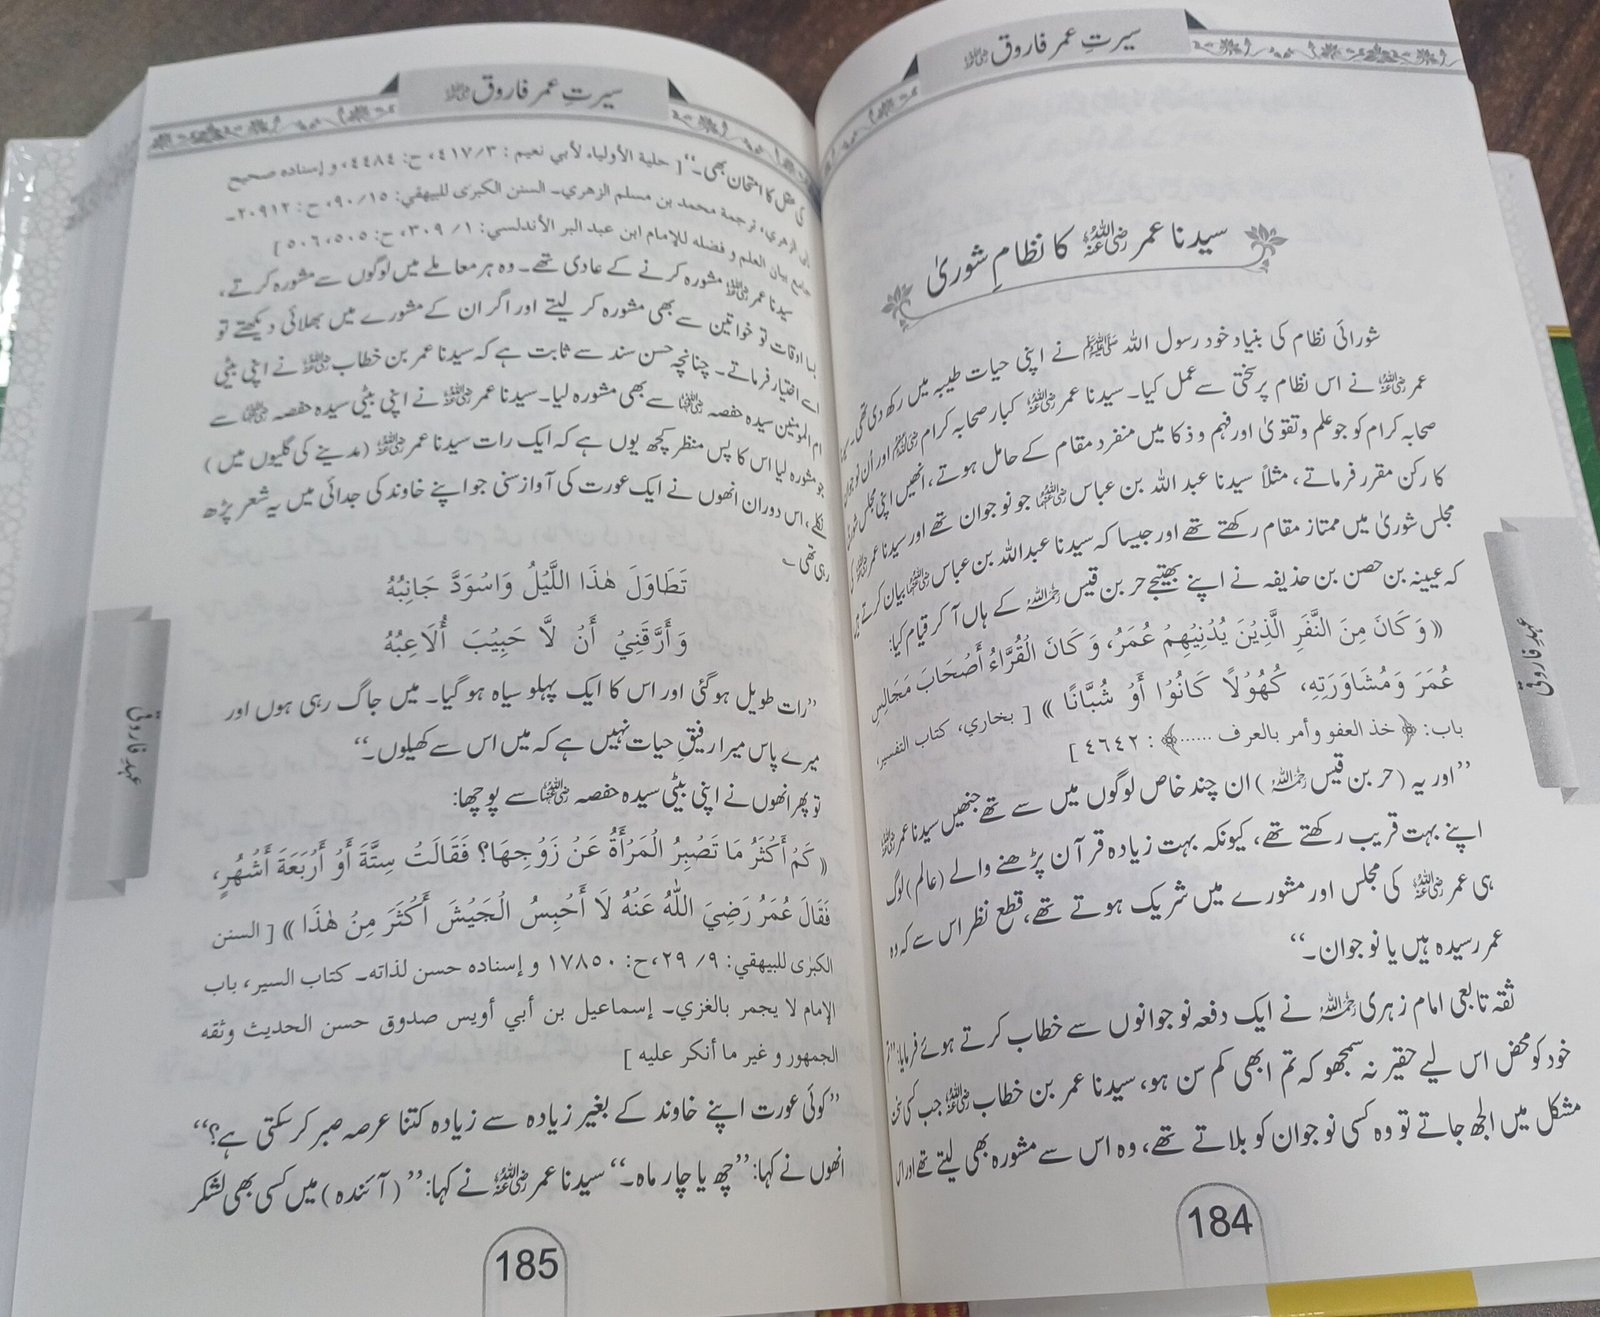 سیرتِ عمر فاروق رضی اللہ عنہ
سیدنا عمر رضی اللہ عنہ کا نظامِ شوریٰ
شورائی نظام کی بنیاد خود رسول اللہ ﷺ نے اپنی حیات طیبہ میں رکھ دی تھی۔
عمر رضی اللہ عنہ نے اس نظام پر سختی سے عمل کیا۔ سیدنا عمر رضی اللہ عنہ کبار صحابہ کرام رضی اللہ عنہم اور اُن نوجوان
صحابہ کرام کو جو علم و تقویٰ اور فہم و ذکا میں منفرد مقام کے حامل ہوتے، انھیں اپنی مجلس شوریٰ
کا رکن مقرر فرماتے، مثلاً سیدنا عبد اللہ بن عباس رضی اللہ عنہما جو نوجوان تھے اور سیدنا عمر رضی اللہ عنہ کی
مجلس شوریٰ میں ممتاز مقام رکھتے تھے اور جیسا کہ سیدنا عبداللہ بن عباس رضی اللہ عنہما بیان کرتے ہیں
کہ عیینہ بن حصن بن حذیفہ نے اپنے بھتیجے حر بن قیس رحمہ اللہ کے ہاں آ کر قیام کیا:
« وَ كَانَ مِنَ النَّفَرِ الَّذِيْنَ يُدْنِيْهِمْ عُمَرُ، وَ كَانَ الْقُرَّاءُ أَصْحَابَ مَجَالِسِ
عُمَرَ وَمُشَاوَرَتِهِ، كُهُوْلًا كَانُوْا أَوْ شُبَّانًا » [ بخاري، كتاب التفسير،
باب: ﴿ خذ العفو وأمر بالعرف ...... ﴾ : ٤٦٤٢ ]
’’اور یہ (حر بن قیس رحمہ اللہ) ان چند خاص لوگوں میں سے تھے جنھیں سیدنا عمر رضی اللہ عنہ
اپنے بہت قریب رکھتے تھے، کیونکہ بہت زیادہ قرآن پڑھنے والے (عالم) لوگ
ہی عمر رضی اللہ عنہ کی مجلس اور مشورے میں شریک ہوتے تھے، قطع نظر اس سے کہ وہ
عمر رسیدہ ہیں یا نوجوان۔‘‘
ثقہ تابعی امام زہری رحمہ اللہ نے ایک دفعہ نوجوانوں سے خطاب کرتے ہوئے فرمایا:
خود کو محض اس لیے حقیر نہ سمجھو کہ تم ابھی کم سن ہو، سیدنا عمر بن خطاب رضی اللہ عنہ جب کسی
مشکل میں الجھ جاتے تو وہ کسی نوجوان کو بلاتے تھے، وہ اس سے مشورہ بھی لیتے تھے اور اس
184
عہدِ فاروقی
سیرتِ عمر فاروق رضی اللہ عنہ
کی عقل کا امتحان بھی۔‘‘ [ حلية الأولياء لأبي نعيم : ٣/ ٤١٧، ح: ٤٤٨٤، و إسناده صحيح
الزهري، ترجمة محمد بن مسلم الزهري۔ السنن الكبرٰى للبيهقي: ١٥/ ٩٠، ح: ٢٠٩١٢۔
جامع بيان العلم و فضله للإمام ابن عبد البر الأندلسي: ١/ ٣٠٩، ح: ٥٠٥، ٥٠٦ ]
سیدنا عمر رضی اللہ عنہ مشورہ کرنے کے عادی تھے۔ وہ ہر معاملے میں لوگوں سے مشورہ کرتے،
بسا اوقات تو خواتین سے بھی مشورہ کر لیتے اور اگر ان کے مشورے میں بھلائی دیکھتے تو
اسے اختیار فرماتے۔ چنانچہ حسن سند سے ثابت ہے کہ سیدنا عمر بن خطاب رضی اللہ عنہ نے اپنی بیٹی
ام المومنین سیدہ حفصہ رضی اللہ عنہا سے بھی مشورہ لیا۔ سیدنا عمر رضی اللہ عنہ نے اپنی بیٹی سیدہ حفصہ رضی اللہ عنہا سے
جو مشورہ لیا اس کا پس منظر کچھ یوں ہے کہ ایک رات سیدنا عمر رضی اللہ عنہ (مدینے کی گلیوں میں)
نکلے، اس دوران انھوں نے ایک عورت کی آواز سنی جو اپنے خاوند کی جدائی میں یہ شعر پڑھ
رہی تھی ؎
تَطَاوَلَ هٰذَا اللَّيْلُ وَاسْوَدَّ جَانِبُهُ
وَ أَرَّقَنِيْ أَنْ لَّا حَبِيْبَ أُلَاعِبُهُ
’’رات طویل ہو گئی اور اس کا ایک پہلو سیاہ ہو گیا۔ میں جاگ رہی ہوں اور
میرے پاس میرا رفیقِ حیات نہیں ہے کہ میں اس سے کھیلوں۔‘‘
تو پھر انھوں نے اپنی بیٹی سیدہ حفصہ رضی اللہ عنہا سے پوچھا:
« كَمْ أَكْثَرُ مَا تَصْبِرُ الْمَرْأَةُ عَنْ زَوْجِهَا؟ فَقَالَتْ سِتَّةَ أَوْ أَرْبَعَةَ أَشْهُرٍ،
فَقَالَ عُمَرُ رَضِيَ اللّٰهُ عَنْهُ لَا أَحْبِسُ الْجَيْشَ أَكْثَرَ مِنْ هٰذَا » [ السنن
الكبرٰى للبيهقي: ٩/ ٢٩، ح: ١٧٨٥٠ و إسناده حسن لذاته۔ كتاب السير، باب
الإمام لا يجمر بالغزي۔ إسماعيل بن أبي أويس صدوق حسن الحديث وثقه
الجمهور و غير ما أنكر عليه ]
’’کوئی عورت اپنے خاوند کے بغیر زیادہ سے زیادہ کتنا عرصہ صبر کر سکتی ہے؟‘‘
انھوں نے کہا: ’’چھ یا چار ماہ۔‘‘ سیدنا عمر رضی اللہ عنہ نے کہا: ’’(آئندہ) میں کسی بھی لشکر
185
عہدِ فاروقی